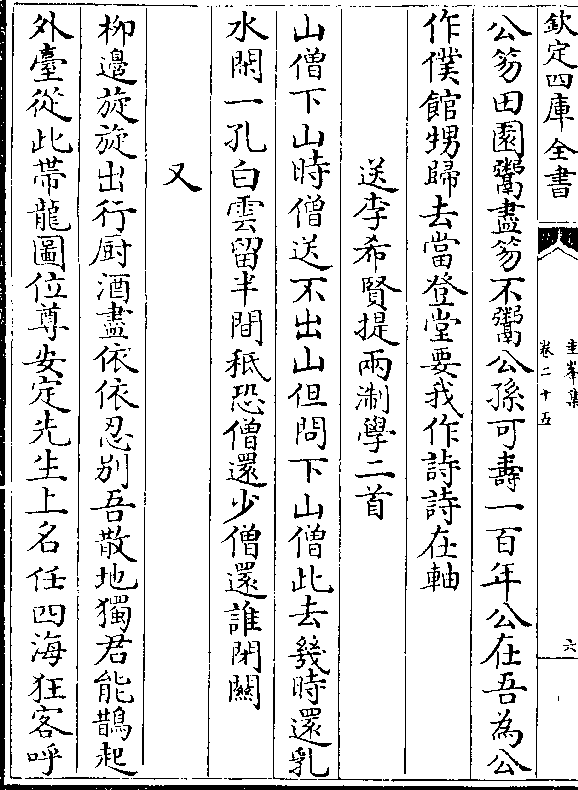 欽定四庫全書
圭峯集
卷二十五
六
公笏田園鬻盡笏不鬻公孫可壽一百年公在吾為公
作僕館甥歸去當登堂要我作詩詩在軸
送李希賢提兩淛學二首
山僧下山時僧送不出山但問下山僧此去幾時還乳
水閑一孔白雲留半間秪恐僧還少僧還誰閉關
又
柳邉旋旋出行厨酒盡依依忍别吾散地獨君能鵲起
外臺從此帶龍圖位尊安定先生上名任四海狂客呼